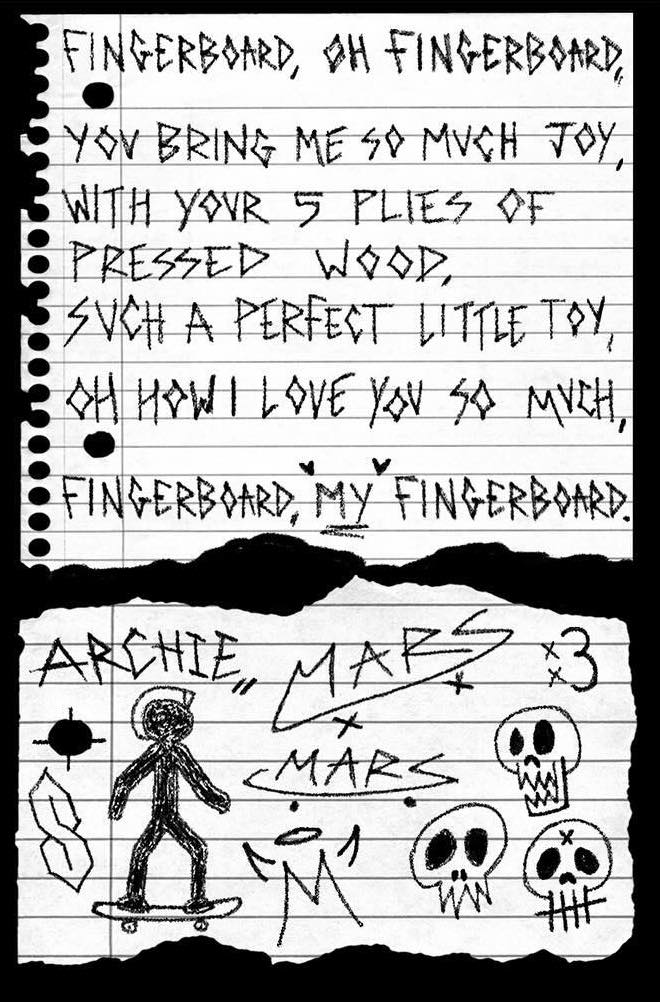 FINGERBOARD, OH FINGERBOARD,
YOU BRING ME SO MUCH JOY,
WITH YOUR 5 PLIES OF
PRESSED WOOD,
SUCH A PERFECT LITTLE TOY,
OH HOW I LOVE YOU SO MUCH,
FINGERBOARD, MY FINGERBOARD.
ARCHIE,, MARS xx3
MARS
M